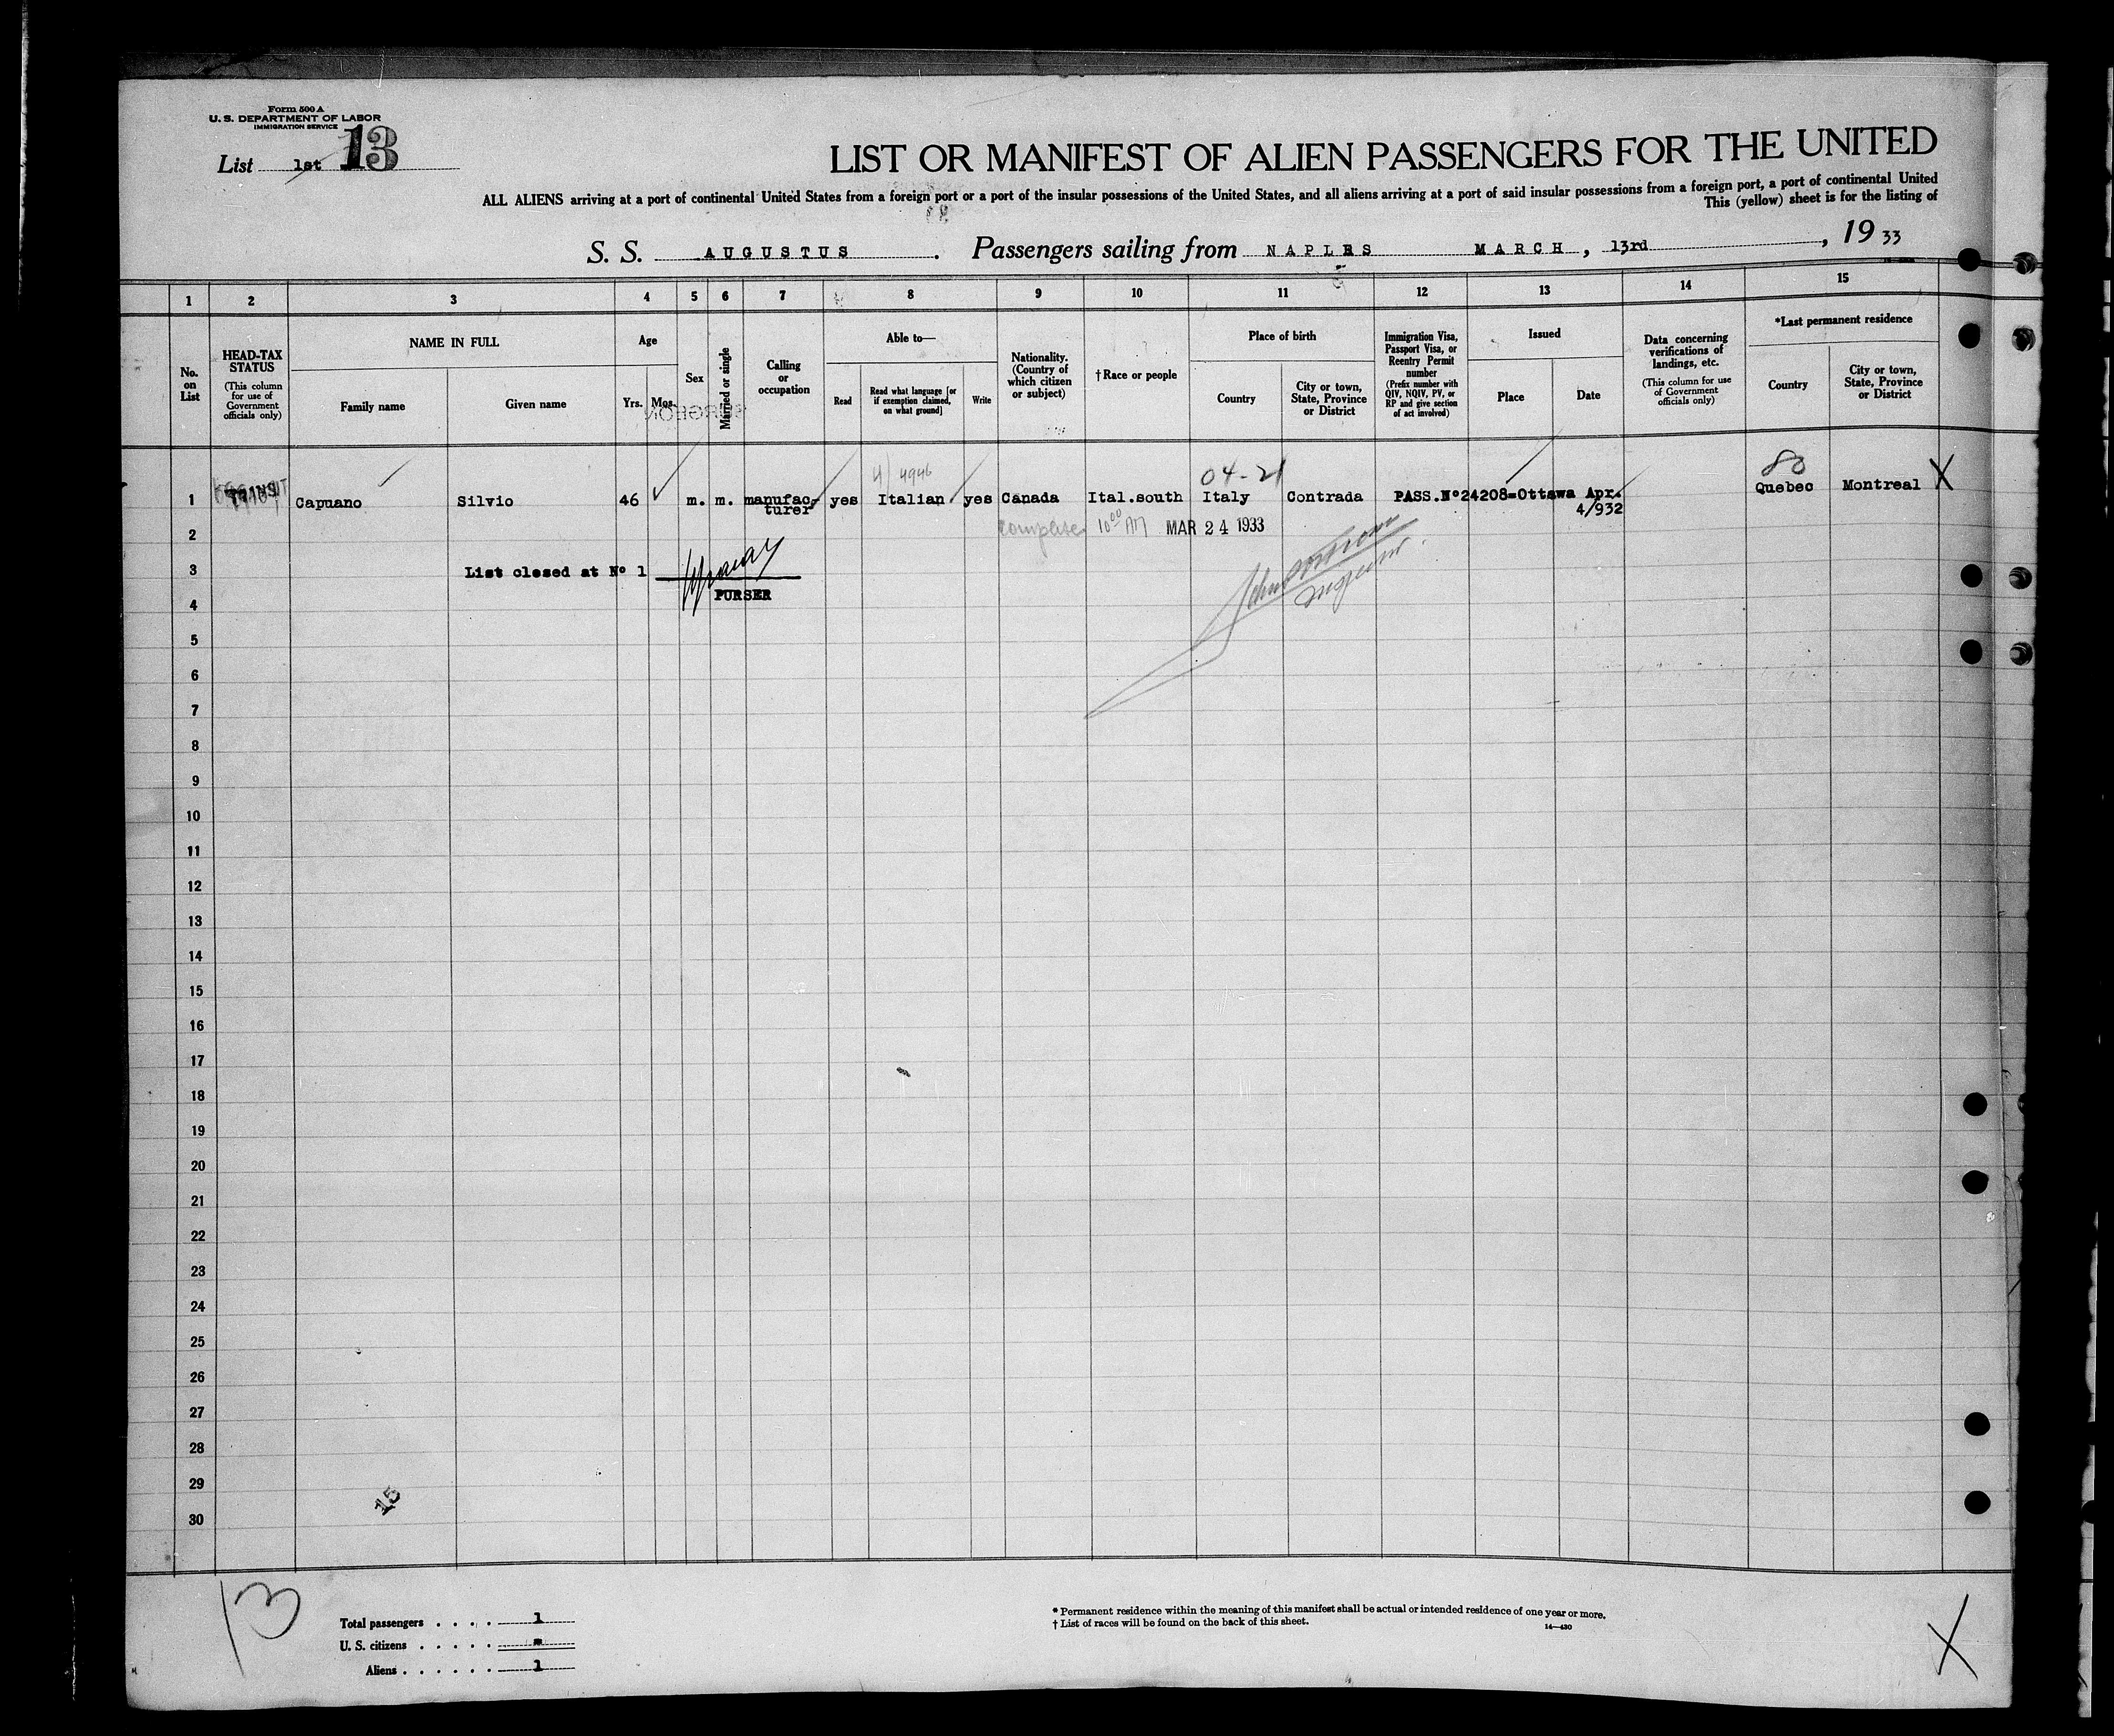 Form 500 A
U. S. DEPARTMENT OF LABOR
IMMIGRATION SERVICE
List 1st 13
LIST OR MANIFEST OF ALIEN PASSENGERS FOR THE UNITED
ALL ALIENS arriving at a port of continental United States from a foreign port or a port of the insular possessions of the United States, and all aliens arriving at a port of said insular possessions from a foreign port, a port of continental United
This (yellow) sheet is for the listing of
S. S. AUGUSTUS. Passengers sailing from NAPLES MARCH, 13rd, 1933
1 2 3 4 5 6 7 8 9 10 11 12 13 14 15
No. on List
HEAD-TAX STATUS
(This column for use of Government officials only)
NAME IN FULL
Family name
Given name
Age
Yrs. Mos.
Sex
Married or single
Calling or occupation
Able to—
Read
Read what language [or if exemption claimed, on what ground]
Write
Nationality. (Country of which citizen or subject)
† Race or people
Place of birth
Country
City or town, State, Province or District
Immigration Visa, Passport Visa, or Reentry Permit number
(Prefix number with QIV, NQIV, PV, or RP and give section of act involved)
Issued
Place
Date
Data concerning verifications of landings, etc.
(This column for use of Government officials only)
*Last permanent residence
Country
City or town, State, Province or District
4/ 4946 04-21 80
1 TRANSIT Capuano Silvio 46 m. m. manufac- yes Italian yes Canada Ital.south Italy Contrada PASS.Nº24208=Ottawa Apr. Quebec Montreal X
turer 4/932
2 complete 10 00 AM MAR 24 1933
3 List closed at Nº 1
PURSER
4
5
6
7
8
9
10
11
12
13
14
15
16
17
18
19
20
21
22
23
24
25
26
27
28
29
15
30
13
Total passengers . . . . 1
U. S. citizens . . . . . =
Aliens . . . . . . 1
* Permanent residence within the meaning of this manifest shall be actual or intended residence of one year or more.
† List of races will be found on the back of this sheet.
14—430
X